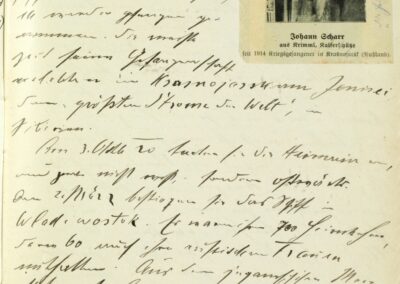 er wurde gefangen ge-
nommen. Die meiste
Zeit seiner Gefangenschaft
erlebte er in Krasnojarsk am Jenissei
dem „größten Strome der Welt", in
Sibirien.
Am 3. Okto 20 traten sie die Heimreise an,
und zwar nicht west-, sondern ostwärts.
Am 2. März bestiegen sie das Schiff in
Wladiwostok. Es waren ihrer 700 Heimkehrer,
davon 60 auch ihre russischen Frauen
mithatten. Aus dem japanischen Meer
Johann Scharr
aus Krimml, Kaiserschütze
seit 1914 Kriegsgefangener in Krasnojarsk (Rußland).